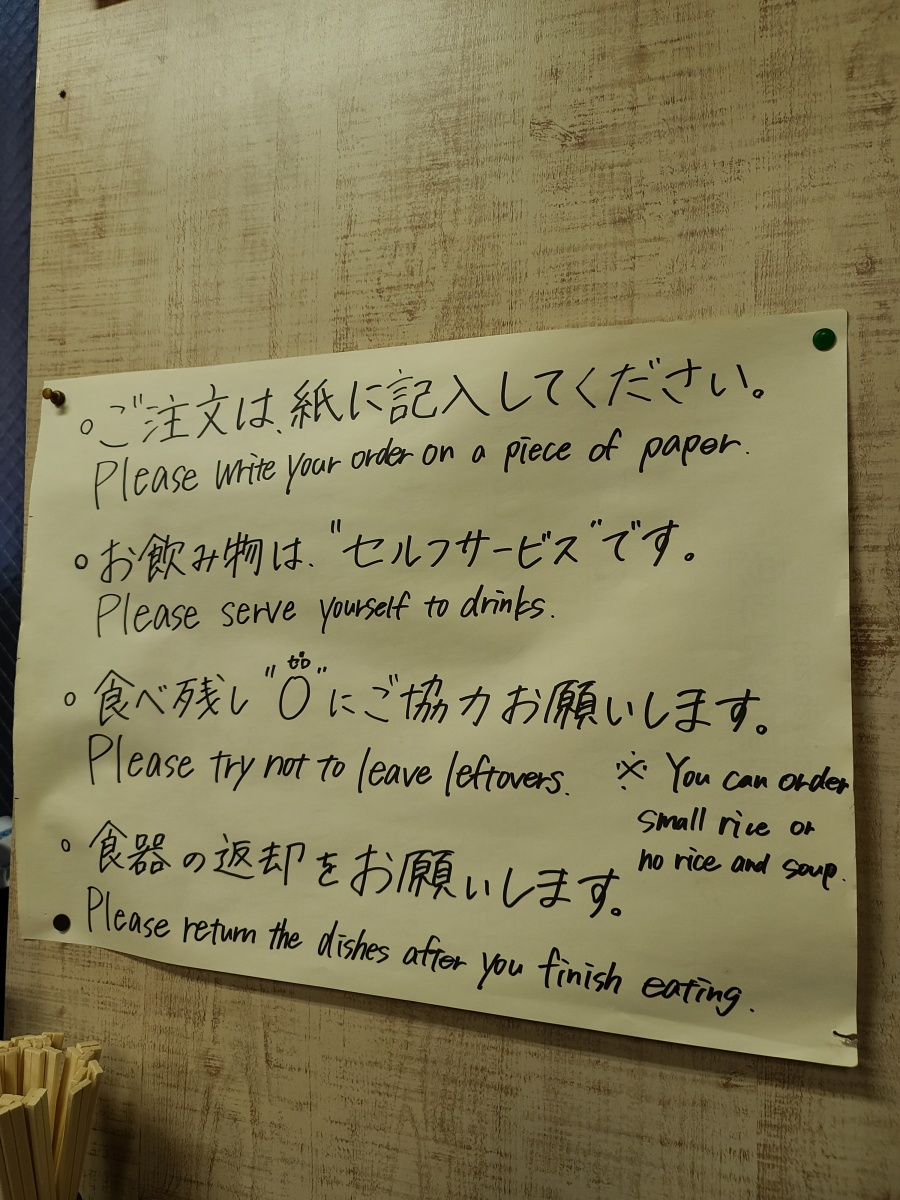 。ご注文は、紙に記入してください。
Please write your order on a piece of paper.
。お飲み物は、"セルフサービス"です。
Please serve yourself to drinks.
ゼロ
。食べ残し"0"にご協力お願いします。
Please try not to leave leftovers.
※ You can order
small rice or
no rice and soup.
。食器の返却をお願いします。
Please return the dishes after you finish eating.